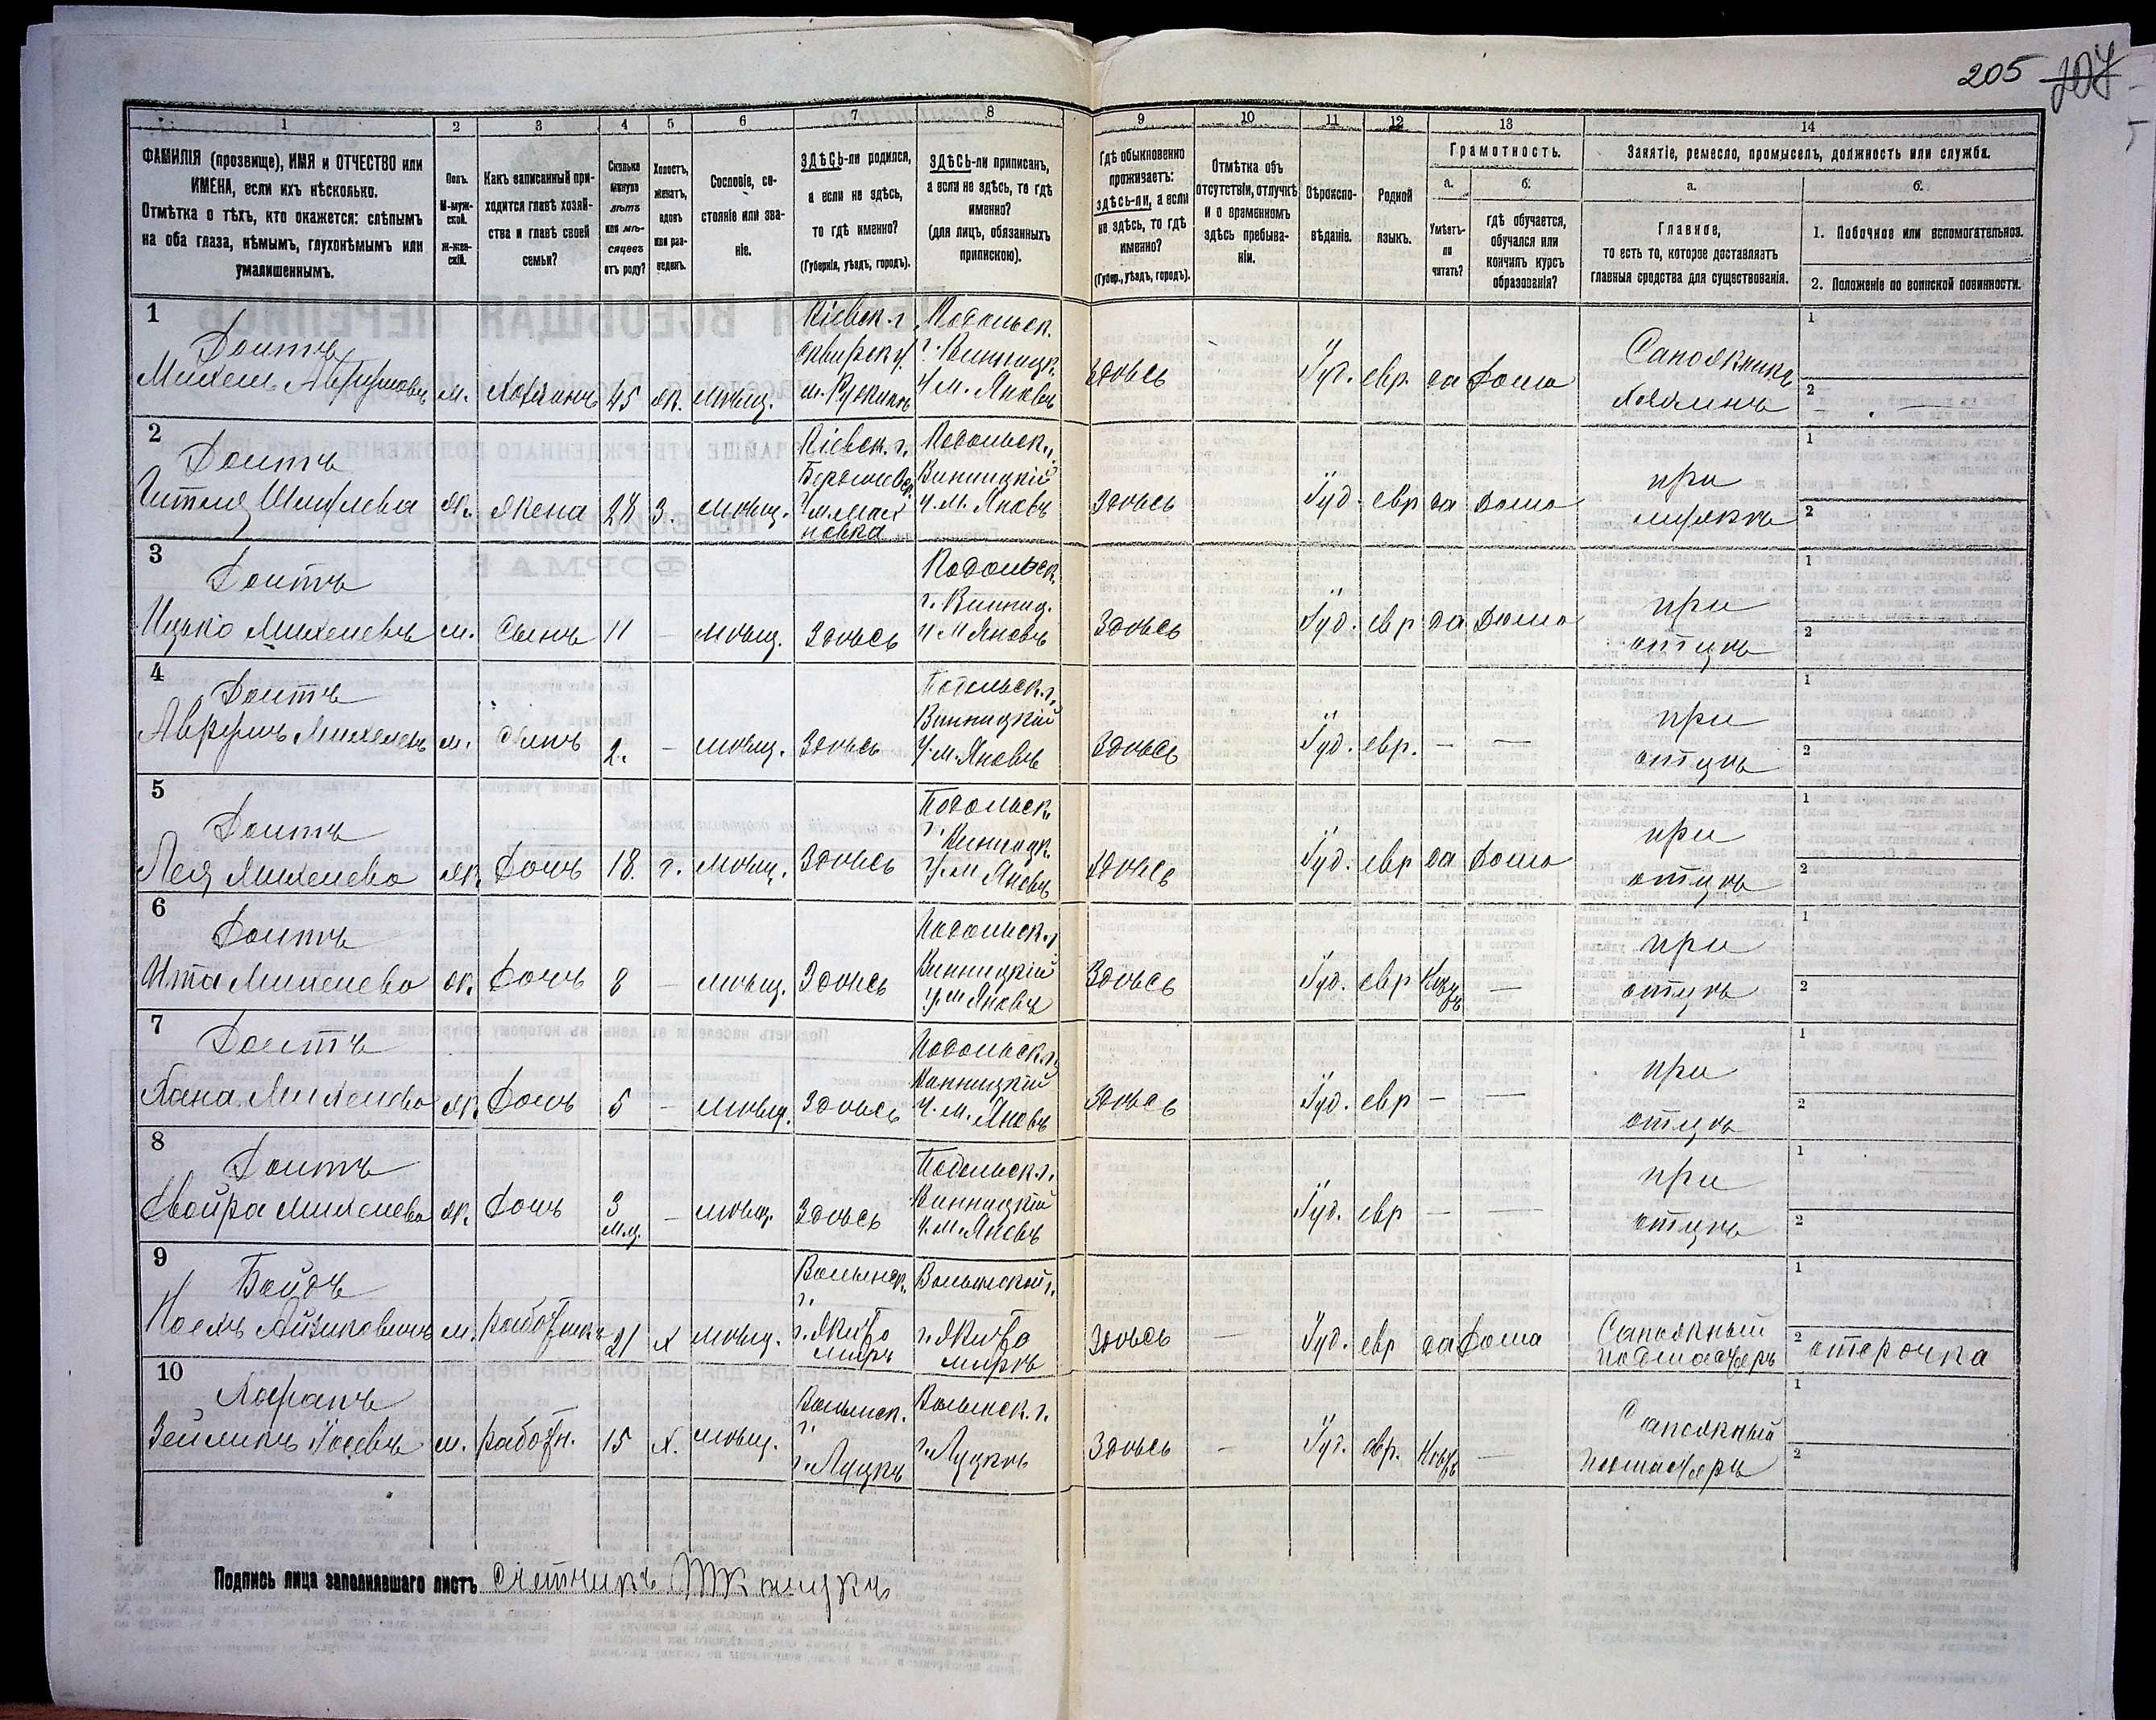 205 207
1 2 3 4 5 6 7 8 9 10 11 12 13 14
ФАМИЛІЯ (прозвище), ИМЯ и ОТЧЕСТВО или
ИМЕНА, если ихъ нѣсколько.
Отмѣтка о тѣхъ, кто окажется: слѣпымъ
на оба глаза, нѣмымъ, глухонѣмымъ или
умалишеннымъ.
Полъ.
М-муж-
ской.
Ж-жен-
скій.
Какъ записанный при-
ходится главѣ хозяй-
ства и главѣ своей
семьи?
Сколько
минуло
лѣтъ
или мѣ-
сяцевъ
отъ роду?
Холостъ,
женатъ,
вдовъ
или раз-
веденъ.
Сословіе, со-
стояніе или зва-
ніе.
ЗДѢСЬ-ли родился,
а если не здѣсь,
то гдѣ именно?
(Губернія, уѣздъ, городъ).
ЗДѢСЬ-ли приписанъ,
а если не здѣсь, то гдѣ
именно?
(для лицъ, обязанныхъ
припискою).
Гдѣ обыкновенно
проживаетъ:
здѣсь-ли, а если
не здѣсь, то гдѣ
именно?
(Губер., уѣздъ, городъ).
Отмѣтка объ
отсутствіи, отлучкѣ
и о временномъ
здѣсь пребыва-
ніи.
Вѣроиспо-
вѣданіе.
Родной
языкъ.
Грамотность.
а.
Умѣетъ-
ли
читать?
б.
гдѣ обучается,
обучался или
кончилъ курсъ
образованія?
Занятіе, ремесло, промыселъ, должность или служба.
а.
Главное,
то есть то, которое доставляетъ
главныя средства для существованія.
б.
1. Побочное или вспомогательное.
2. Положеніе по воинской повинности.
1
Доитъ
Михель Аврумовъ м. хозяинъ 45 ж. мѣщ.
Кіевск. г. Сквирск. у. м. Ружинъ
Подольск. г. Винницк. у. м. Яновъ
Здѣсь Іуд. евр. да дома
Сапожникъ хозяинъ
1
2
2
Доитъ
Гитля Шмулева ж. жена 28 З. мѣщ.
Кіевск. г. Бердичев.
Подольск. г. Винницкій у. м. Яновъ
Здѣсь Іуд. евр да дома
при мужѣ
1
2
3
Доитъ
Ицько Михелевъ м. Сынъ 11 — мѣщ. Здѣсь
Подольск. г. Винниц. у м Яновъ
Здѣсь Іуд. евр да дома
при отцѣ
1
2
4
Доитъ
Аврумъ Михелевъ м. сынъ 2. — мѣщ. Здѣсь
Подольск. г. Винницкій у. м. Яновъ
Здѣсь Іуд. евр. — —
при отцѣ
1
2
5
Доитъ
Лея Михелева ж. дочь 18. г. мѣщ. Здѣсь
Подольск г. Винницк. у. м Яновъ
Здѣсь Іуд. евр да дома
при отцѣ
1
2
6
Доитъ
Ита Михелева ж. дочь 8 — мѣщ. Здѣсь
Подольск. г Винницкій у м Яновъ
Здѣсь Іуд. евр —
при отцѣ
1
2
7
Доитъ
Хана Михелева ж. дочь 5 — мѣщ. Здѣсь
Подольск. г. Винницкій у. м. Яновъ
Здѣсь Іуд. евр — —
при отцѣ
1
2
8
Доитъ
Двойра Михелева ж. дочь 3 мц. — мѣщ. Здѣсь
Подольск. г. Винницкій у. м Яновъ
Іуд. евр — —
при отцѣ
1
2
9
Бойдъ
Айзиковичъ м. работникъ 21 х мѣщ.
Волынск. г. г. Житомиръ
Волынской г. г. Житомиръ
Здѣсь — Іуд. евр да дома
Сапожный подмастеръ
1
2 отсрочка
10
Зейликъ Іосевъ м. работн. 15 х. мѣщ.
Волынск. г. г. Луцкъ
Волынск. г. г. Луцкъ
Здѣсь — Іуд. евр. —
Сапожный подмастеръ
1
2
Подпись лица заполнявшаго листъ Счетчикъ